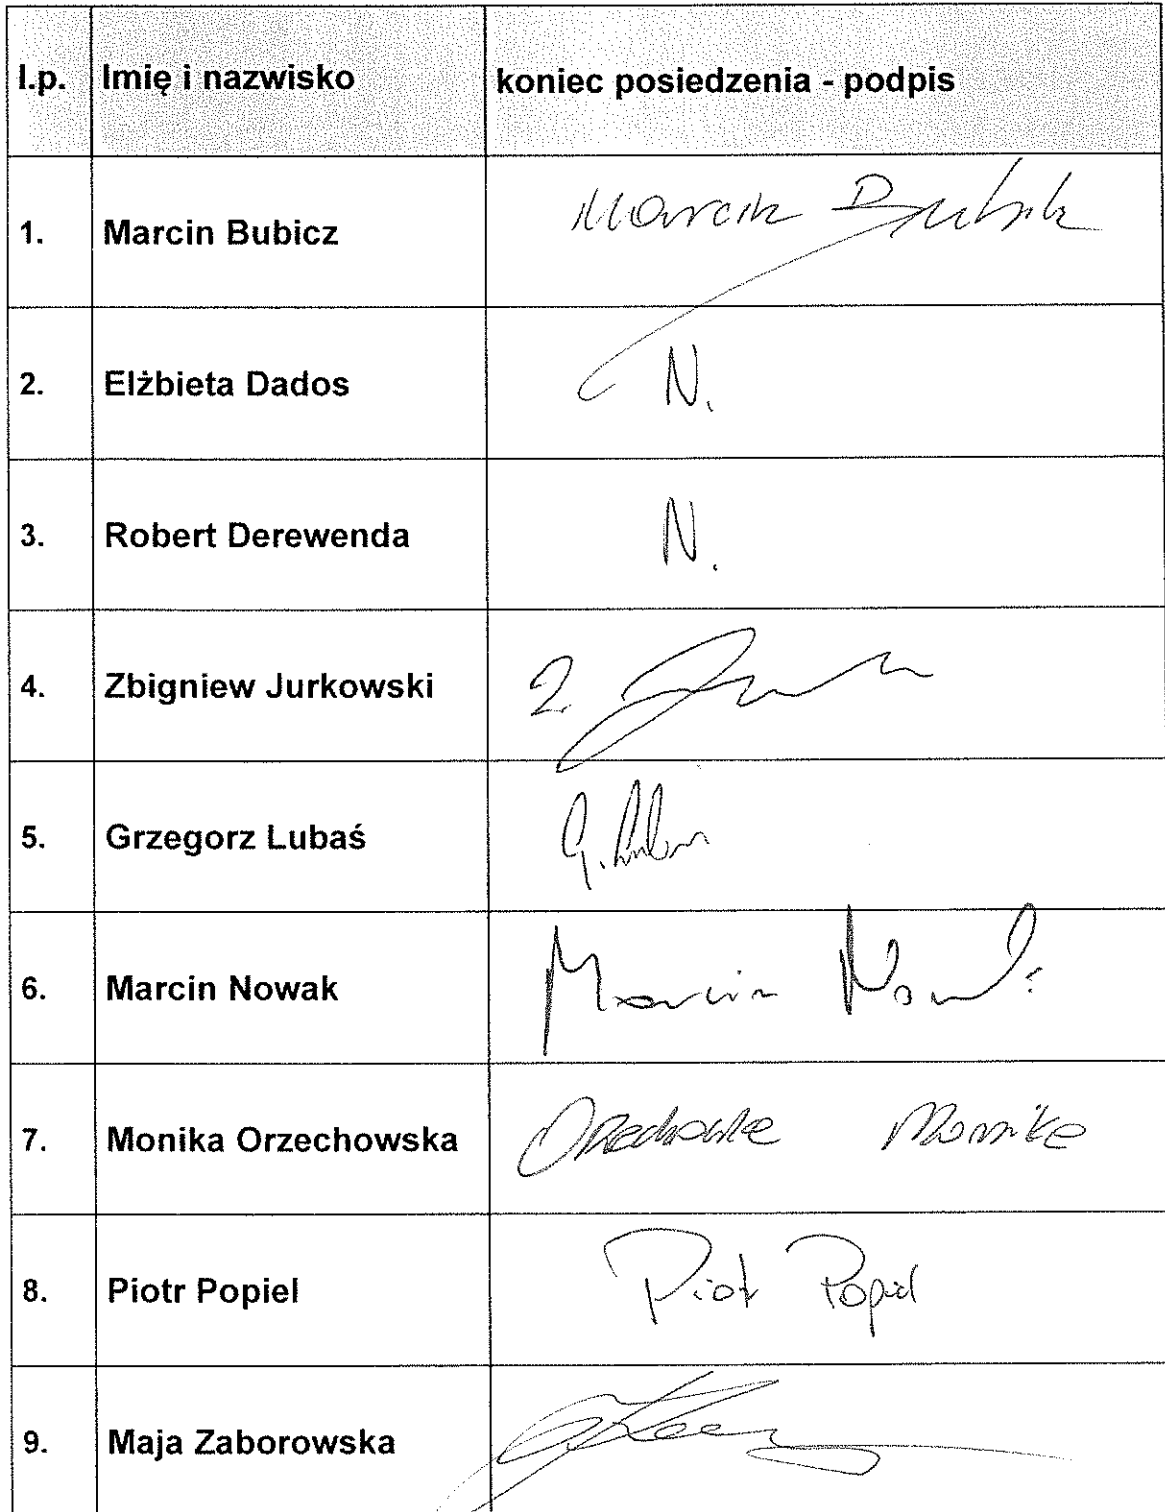 l.p. Imię i nazwisko koniec posiedzenia - podpis
1. Marcin Bubicz Marcin Bubicz
2. Elżbieta Dados N.
3. Robert Derewenda N.
4. Zbigniew Jurkowski
5. Grzegorz Lubaś
6. Marcin Nowak Marcin Nowak
7. Monika Orzechowska Orzechowska Monika
8. Piotr Popiel Piotr Popiel
9. Maja Zaborowska